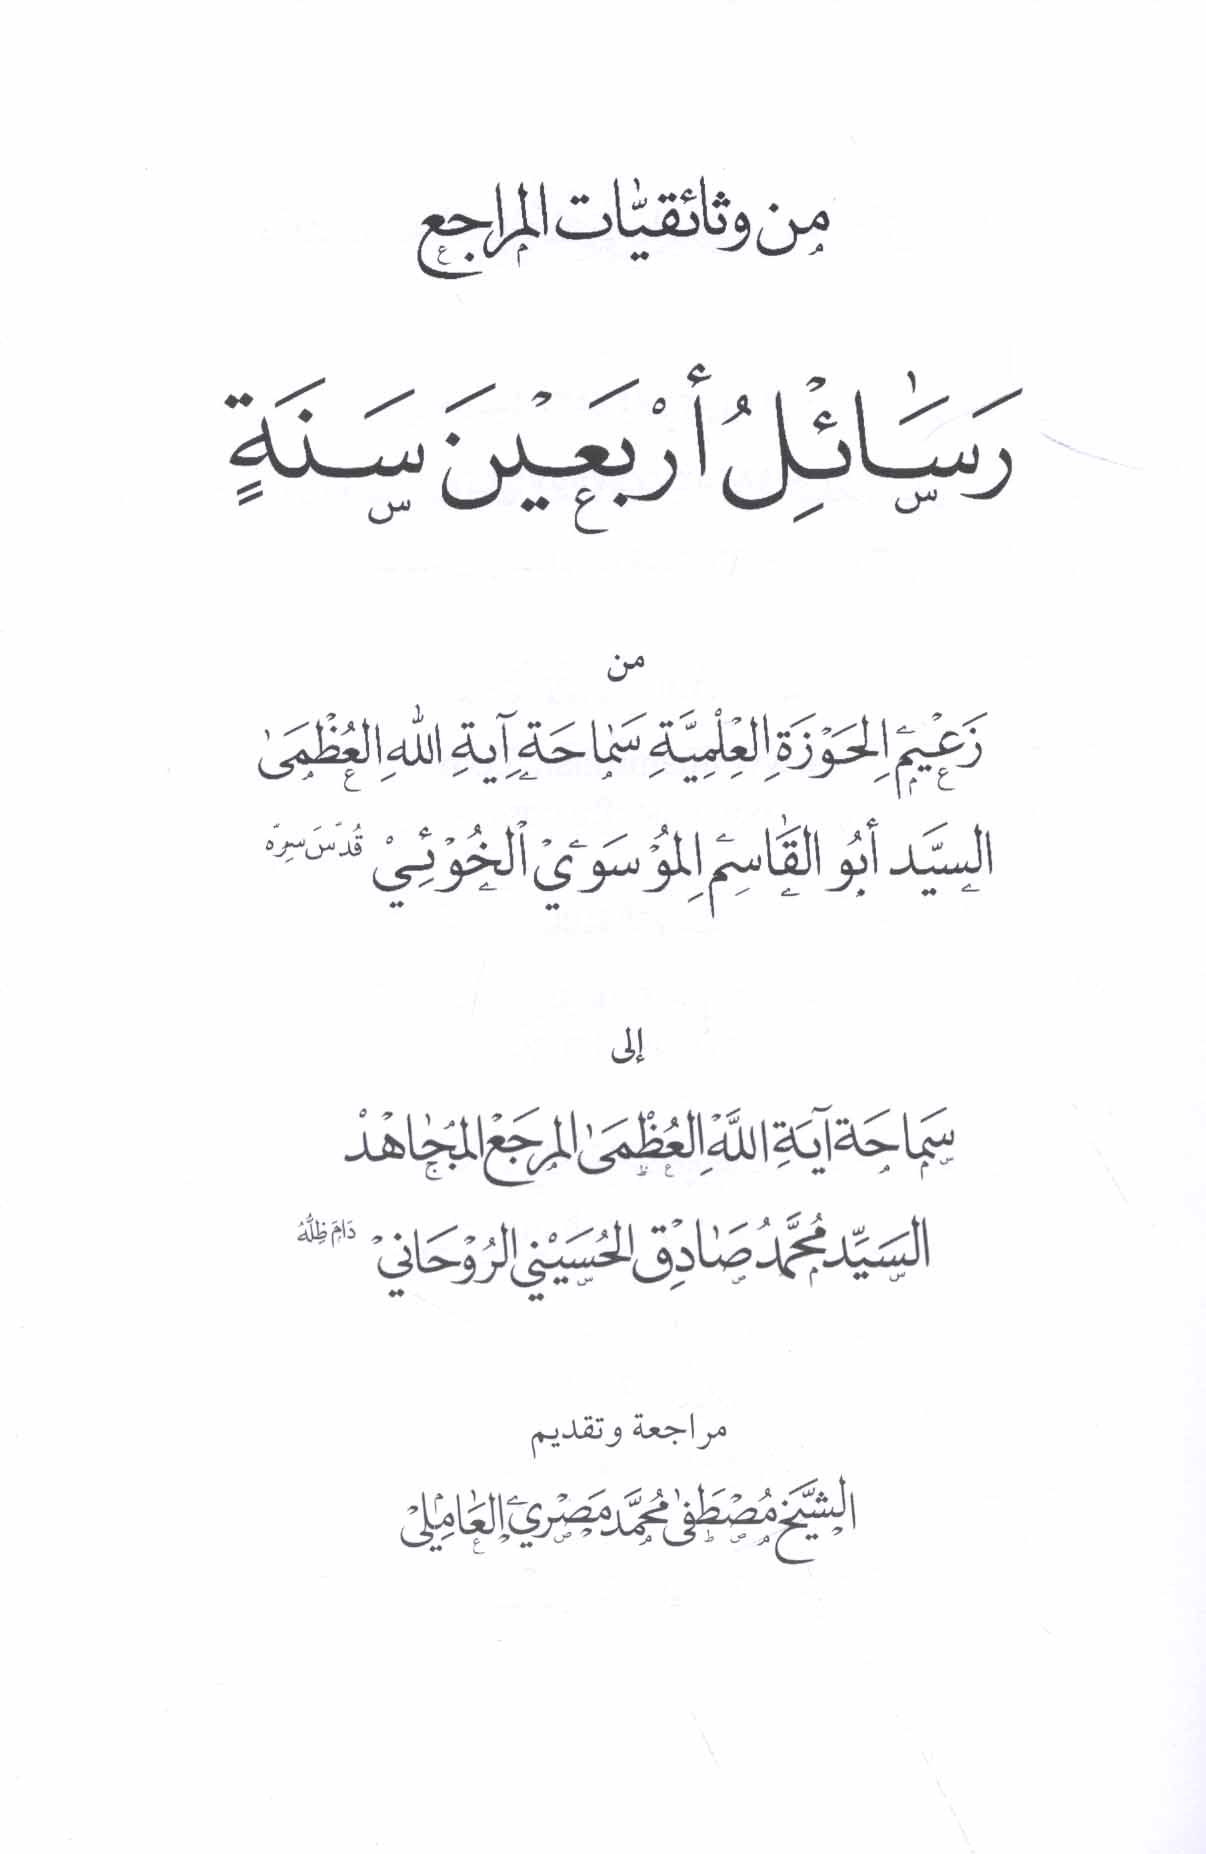 من وثائقيّات المراجع
رَسَائِلُ أَرْبَعِيْنَ سَنَةٍ
من
زَعْيِمِ الحَوْزَةِ العِلْمِيَّةِ سَمَاحَةِ آيةِ اللهِ العُظْمَىٰ
السيَّد أبُو القَاسِمِ المُوْسَوِيْ الْخُوْئِيْ قُدّسَ سِرّه
إلى
سَمَاحَة آيَةِ اللَّهِ العُظْمَىٰ المَرجَعْ المُجَاهِدْ
السَيِّد مُحَمَّدْ صَادِقْ الحُسَيْنِي الرُوْحَانِيْ دَامَ ظِلُّهُ
مراجعة وتقديم
الشَّيَخ مُصْطَفىٰ مُحمَّد مَصْرِي العَامِلِي